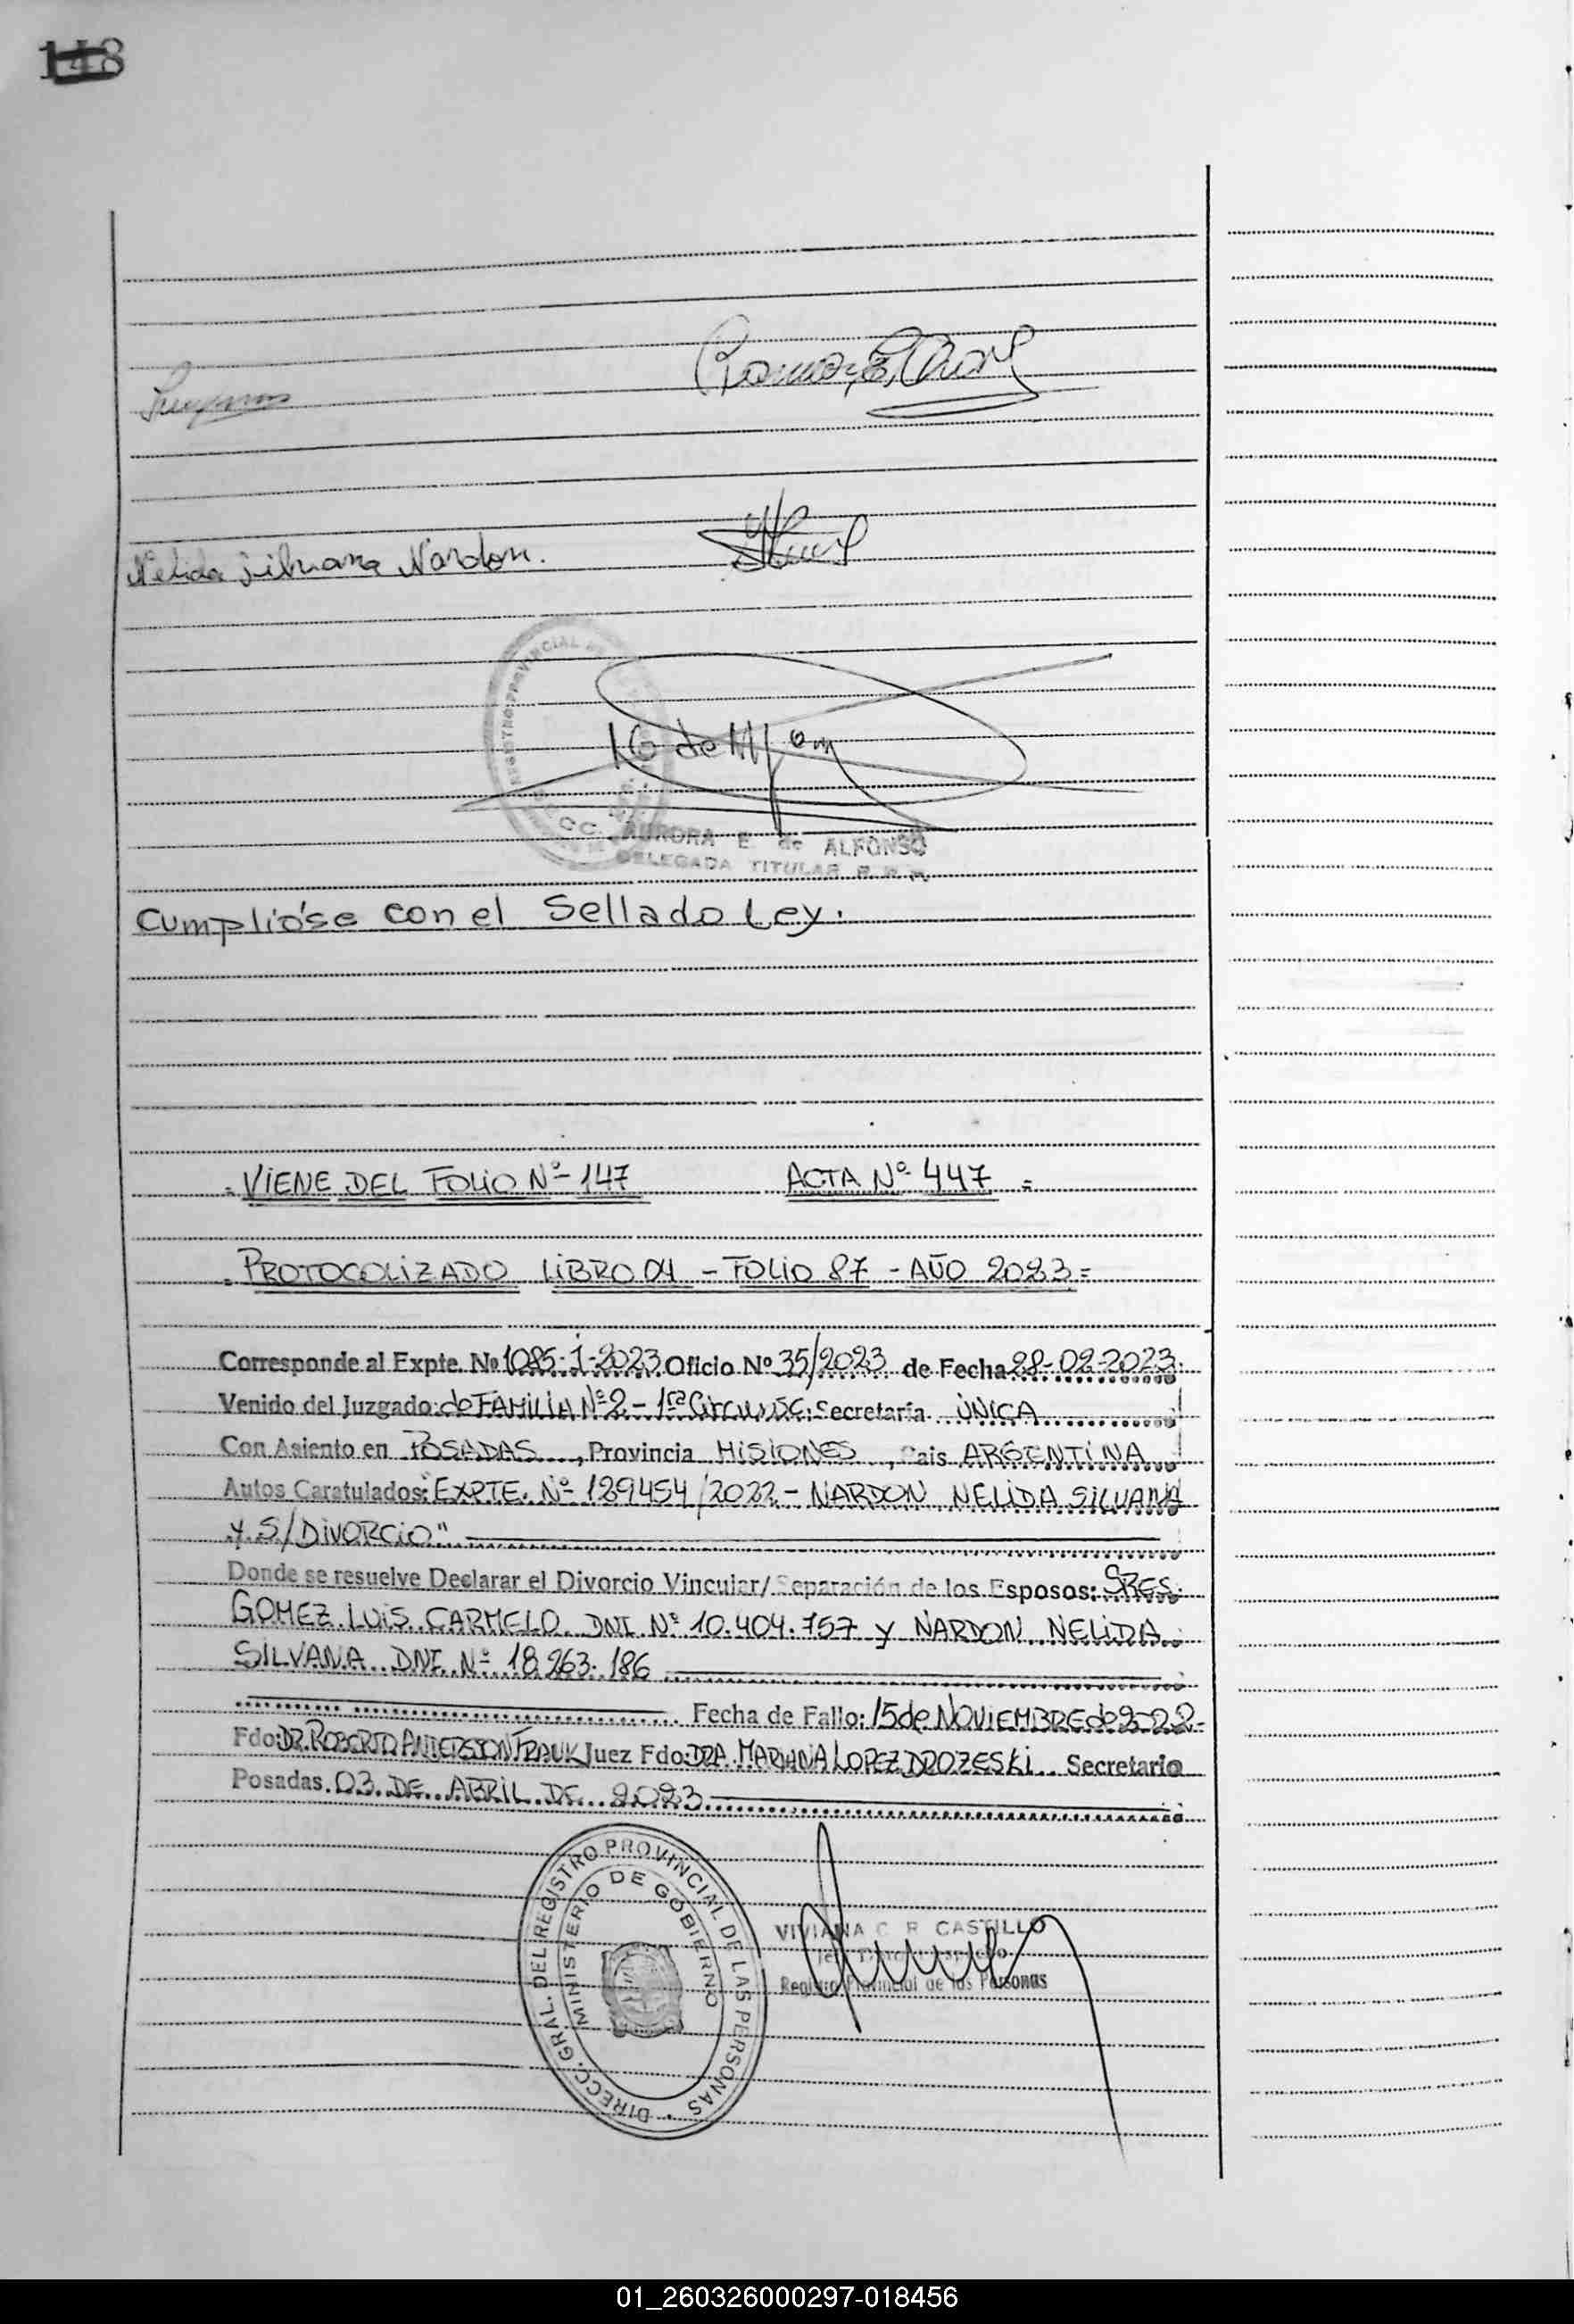 148
Nelida Silvana Nardon.
REGISTRO PROVINCIAL DE
AURORA E. de ALFONSO
DELEGADA TITULAR R. P. P.
Cumplióse con el Sellado Ley.
= VIENE DEL FOLIO Nº 147 ACTA Nº 447 =
= PROTOCOLIZADO LIBRO 01 - FOLIO 87 - AÑO 2023 =
Corresponde al Expte. Nº 1085-1-2023 Oficio Nº 35/2023 de Fecha 28-02-2023
Venido del Juzgado: de FAMILIA Nº 2 - 1ra Circunsc. Secretaría ÚNICA
Con Asiento en POSADAS, Provincia MISIONES, Pais ARGENTINA
Autos Caratulados: EXPTE. Nº 129454/2022 - NARDON NELIDA SILVANA
Y. S/DIVORCIO"
Donde se resuelve Declarar el Divorcio Vincular/Separación de los Esposos: SRES.
GOMEZ LUIS CARMELO DNI Nº 10.404.757 y NARDON NELIDA
SILVANA DNI Nº 18.263.186
Fecha de Fallo: 15 de NOVIEMBRE de 2022
Fdo: DR. ROBERTO Juez Fdo: DRA. MARIANA LOPEZ DROZESKI Secretario
Posadas. 03 DE ABRIL DE 2023
DIRECC. GRAL. DEL REGISTRO PROVINCIAL DE LAS PERSONAS
MINISTERIO DE GOBIERNO
VIVIANA C. R. CASTILLO
Registro Provincial de las Personas
01_260326000297-018456